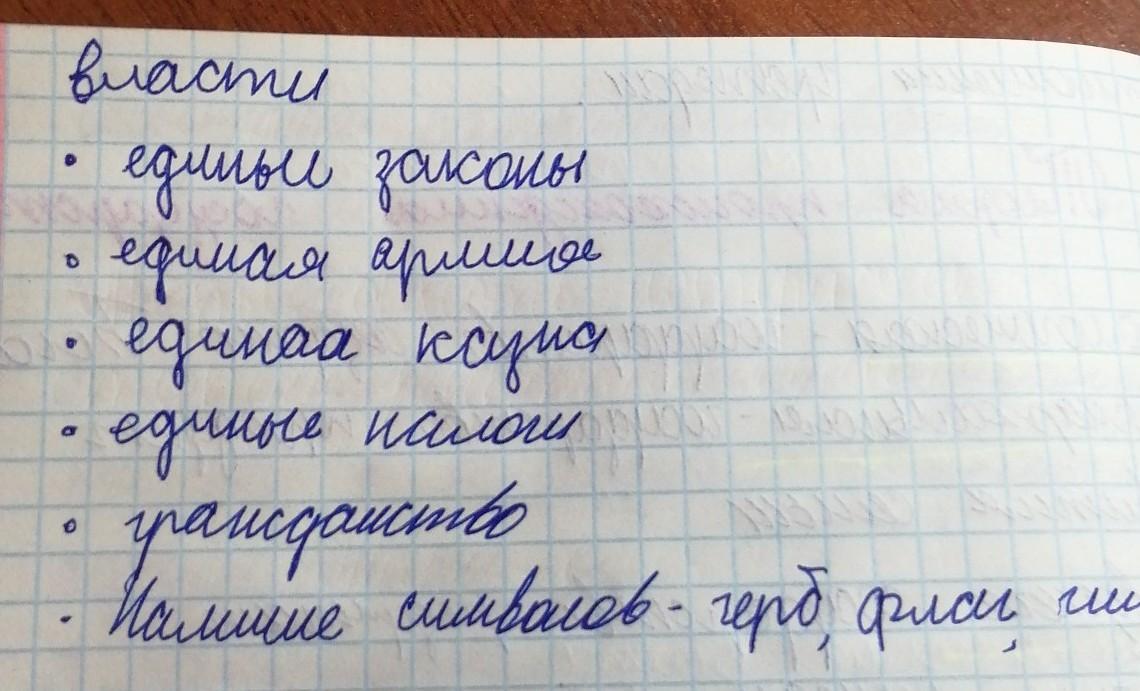 власти
• единые законы
• единая армия
• единая казна
• единые налоги
• гражданство
• Наличие символов - герб, флаг,